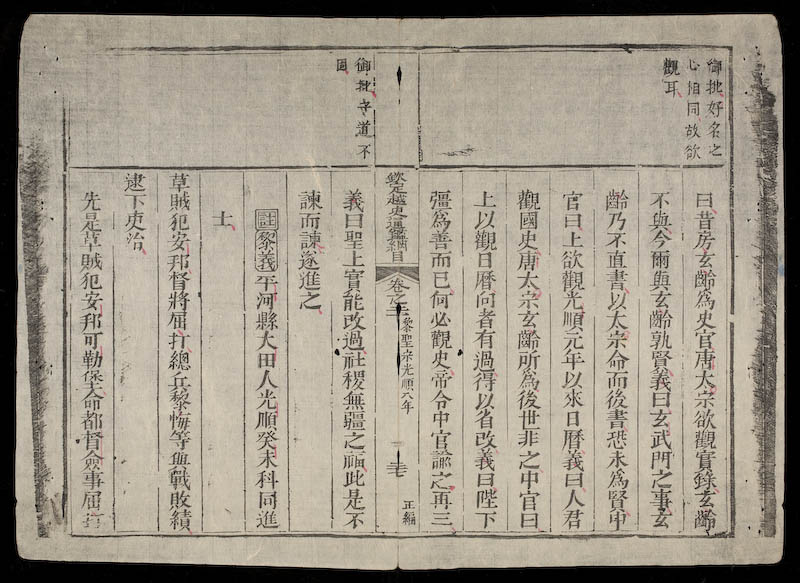 御批好名之
心相同故欲
觀耳
曰昔房玄齡爲史官唐太宗欲觀實錄玄齡
不與今爾與玄齡孰賢義曰玄武門之事玄
齡乃不直書以太宗命而後書恐未爲賢中
官曰上欲觀光順元年以來日曆義曰人君
觀國史唐太宗玄齡所爲後世非之中官曰
上以觀日曆向者有過得以省改義曰陛下
彊爲善而已何必觀史帝令中官諭之再三
欽定越史通鑑綱目
卷之二
黎聖宗光順八年
正編
御批守道不
固
義曰聖上實能改過社稷無疆之福此是不
諫而諫遂進之
註黎義平河縣大田人光順癸未科同進
士
草賊犯安邦督將屈打總兵黎悔等與戰敗績
逮下吏治
先是草賊犯安邦可勒堡命都督僉事屈打